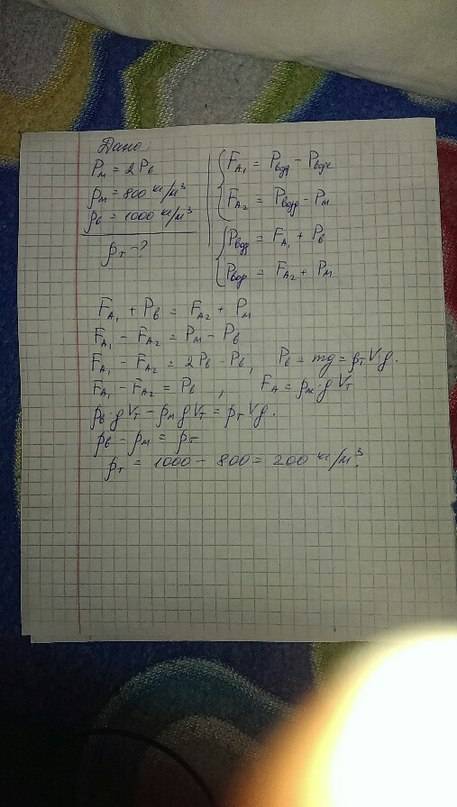 Дано
Pм = 2Pв
ρм = 800 кг/м³
ρв = 1000 кг/м³
ρт - ?
FA₁ = Pвозд - Pводе
FA₂ = Pвозд - Pм
Pвозд = FA₁ + Pв
Pвозд = FA₂ + Pм
FA₁ + Pв = FA₂ + Pм
FA₁ - FA₂ = Pм - Pв
FA₁ - FA₂ = 2Pв - Pв, Pв = mg = ρт Vg.
FA₁ - FA₂ = Pв, FA = ρж·g Vт
ρв·g Vт - ρм g Vт = ρт Vg.
ρв - ρм = ρт
ρт = 1000 - 800 = 200 кг/м³.